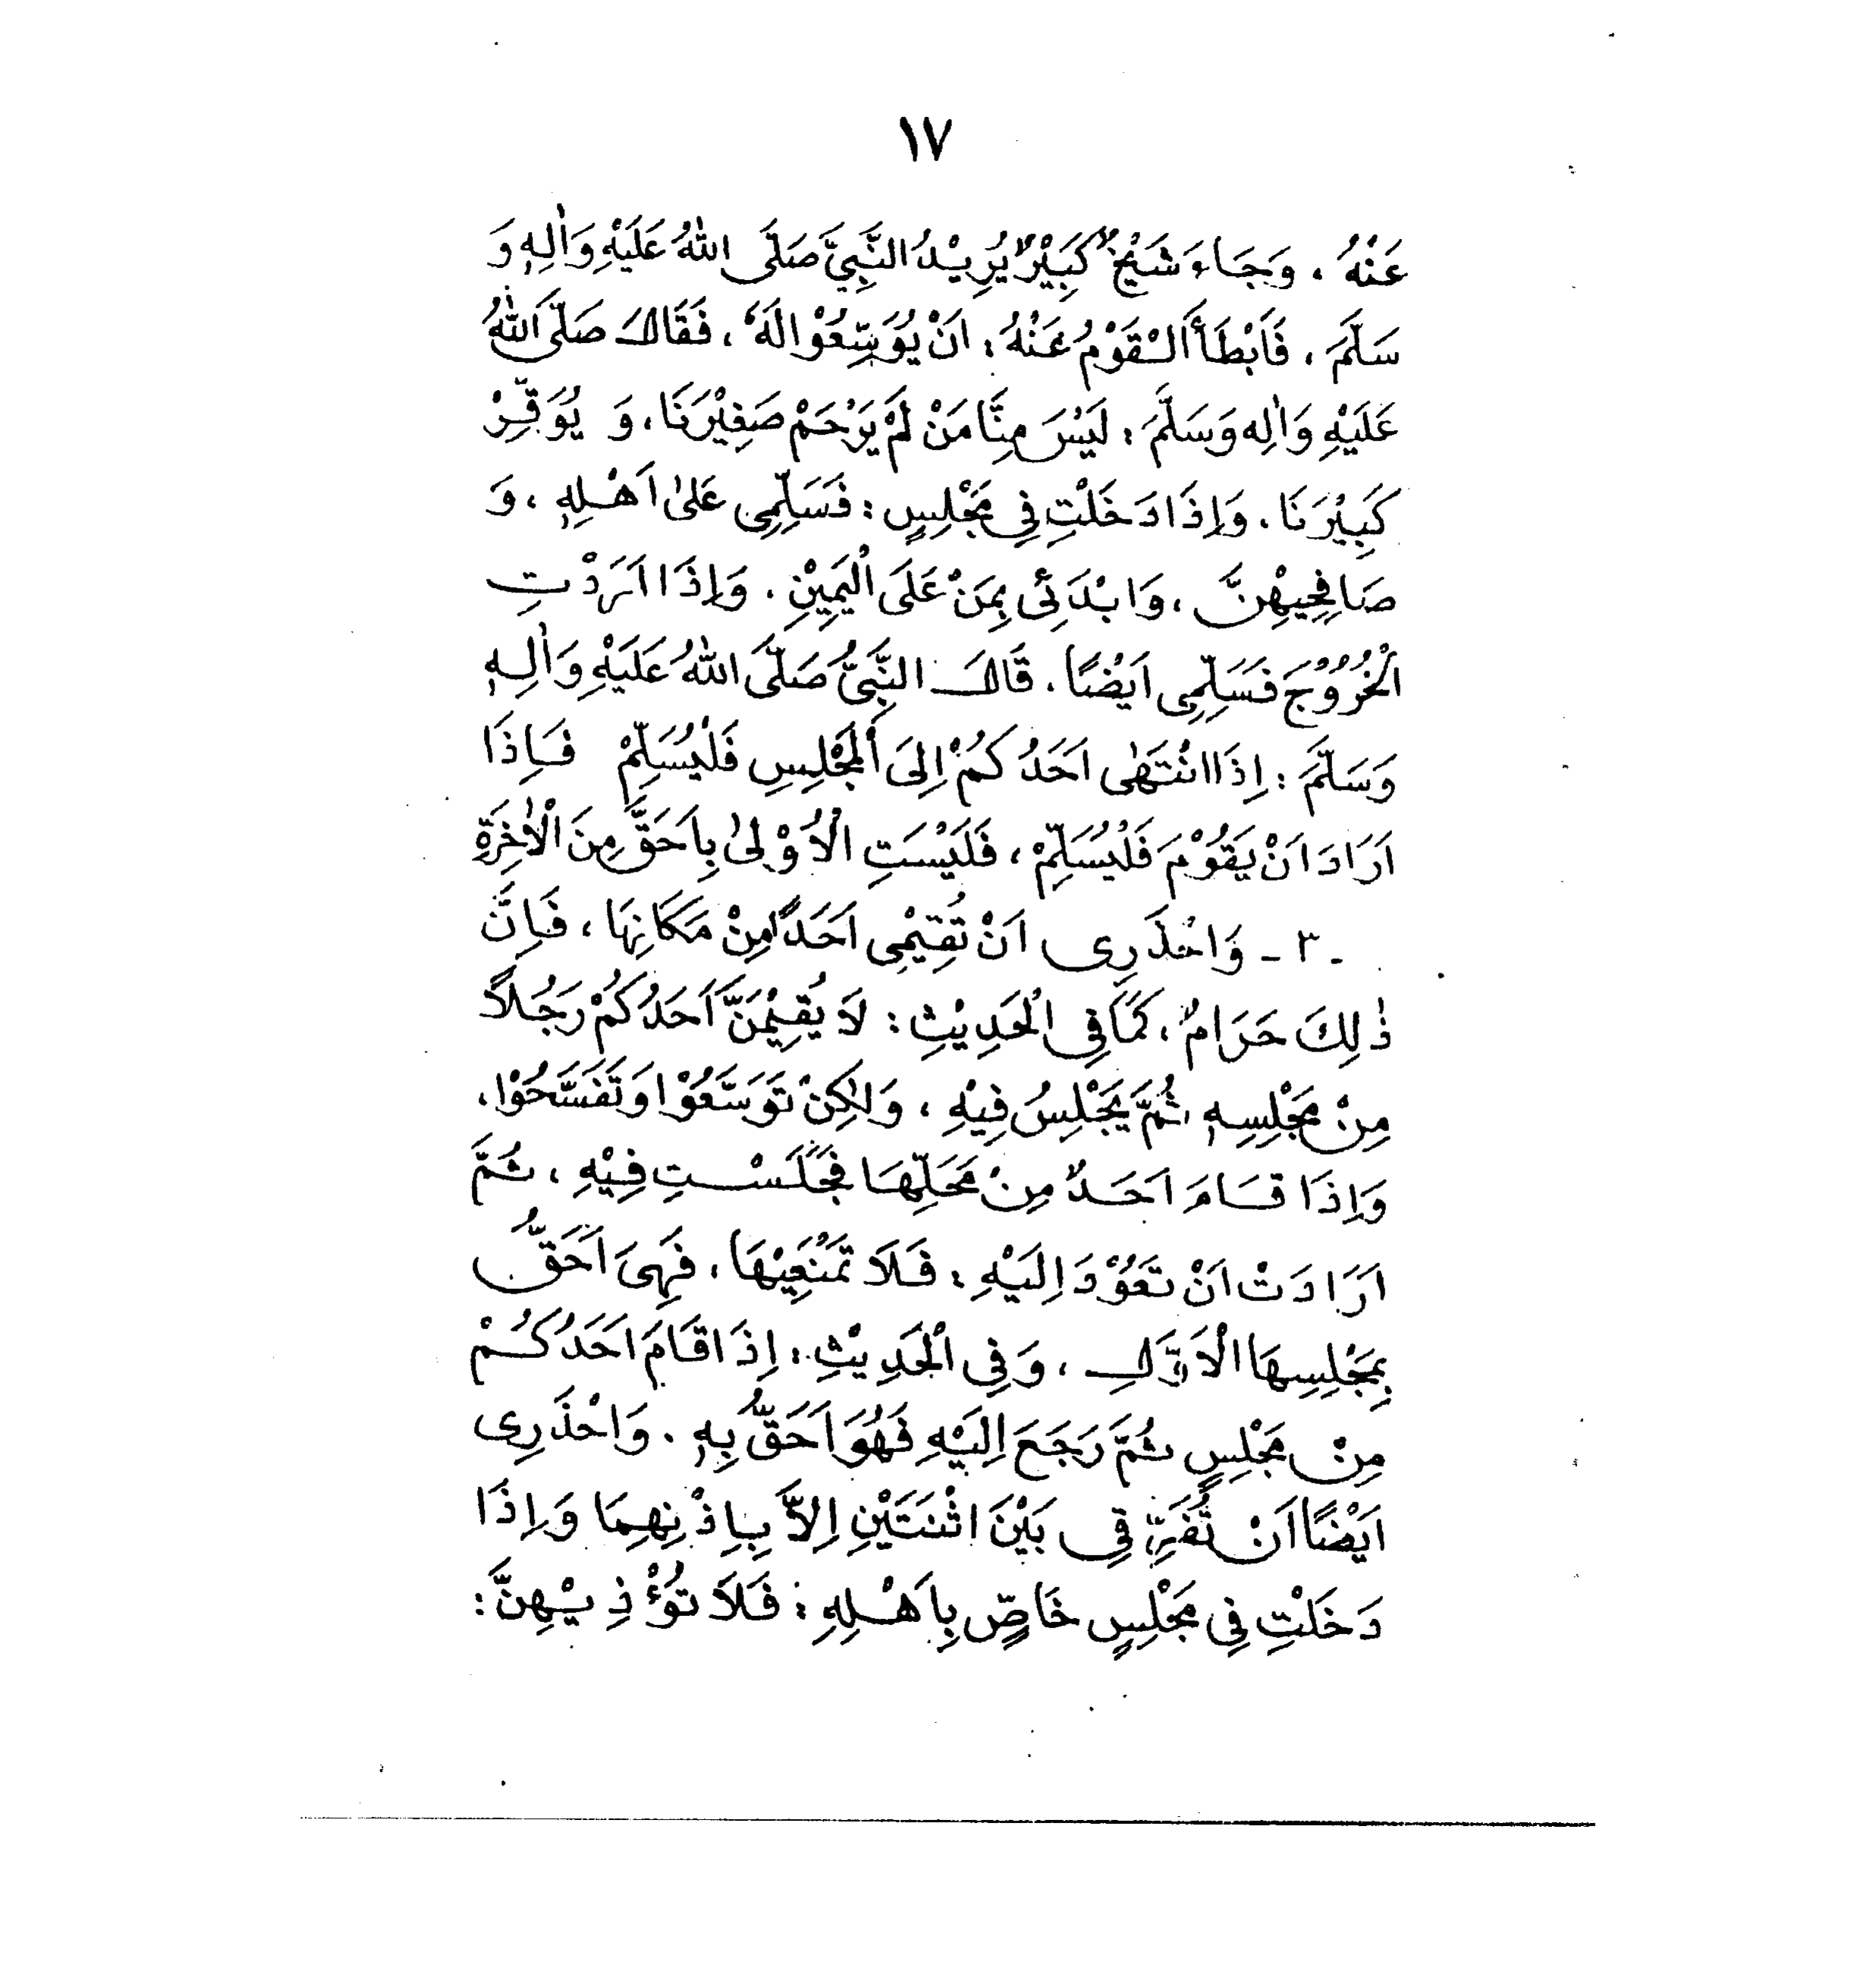 ١٧
عَنْهُ ، وَجَاءَ شَيْخٌ كَبِيْرٌ يُرِيْدُ النَّبِيَّ صَلَّى اللهُ عَلَيْهِ وَاٰلِهٖ وَ
سَلَّمَ ، فَاَبْطَأَ الْقَوْمُ عَنْهُ : اَنْ يُوَسِّعُوْا لَهُ ، فَقَالَ صَلَّى اللهُ
عَلَيْهِ وَاٰلِهٖ وَسَلَّمَ : لَيْسَ مِنَّا مَنْ لَمْ يَرْحَمْ صَغِيْرَنَا ، وَ يُوَقِّرْ
كَبِيْرَنَا . وَاِذَا دَخَلْتِ فِي مَجْلِسٍ : فَسَلِّمِى عَلٰى اَهْلِهٖ ، وَ
صَافِحِيْهِنَّ ، وَابْدَئِى بِمَنْ عَلَى الْيَمِيْنِ . وَاِذَا اَرَدْتِ
الْخُرُوْجَ فَسَلِّمِى اَيْضًا . قَالَ النَّبِيُّ صَلَّى اللهُ عَلَيْهِ وَاٰلِهٖ
وَسَلَّمَ : اِذَا انْتَهٰى اَحَدُكُمْ اِلَى الْمَجْلِسِ فَلْيُسَلِّمْ فَاِذَا
اَرَادَ اَنْ يَقُوْمَ فَلْيُسَلِّمْ ، فَلَيْسَتِ الْاُوْلٰى بِاَحَقَّ مِنَ الْاٰخِرَةِ
ـ ٣ ـ وَاحْذَرِى اَنْ تُقِيْمِى اَحَدًا مِنْ مَكَانِهَا ، فَاِنَّ
ذٰلِكَ حَرَامٌ ، كَمَا فِى الْحَدِيْثِ : لَا يُقِيْمَنَّ اَحَدُكُمْ رَجُلًا
مِنْ مَجْلِسِهٖ ثُمَّ يَجْلِسُ فِيْهِ ، وَلٰكِنْ تَوَسَّعُوْا وَتَفَسَّحُوْا ،
وَاِذَا قَامَ اَحَدٌ مِنْ مَحَلِّهَا فَجَلَسْتِ فِيْهِ ، ثُمَّ
اَرَادَتْ اَنْ تَعُوْدَ اِلَيْهِ : فَلَا تَمْنَعِيْهَا ، فَهِىَ اَحَقُّ
بِمَجْلِسِهَا الْاَوَّلِ ، وَفِى الْحَدِيْثِ : اِذَا قَامَ اَحَدُكُمْ
مِنْ مَجْلِسٍ ثُمَّ رَجَعَ اِلَيْهِ فَهُوَ اَحَقُّ بِهٖ . وَاحْذَرِى
اَيْضًا اَنْ تُفَرِّقِى بَيْنَ اثْنَتَيْنِ اِلَّا بِاِذْنِهِمَا وَاِذَا
دَخَلْتِ فِى مَجْلِسٍ خَاصٍّ بِاَهْلِهِ : فَلَا تُؤْذِيْهِنَّ :